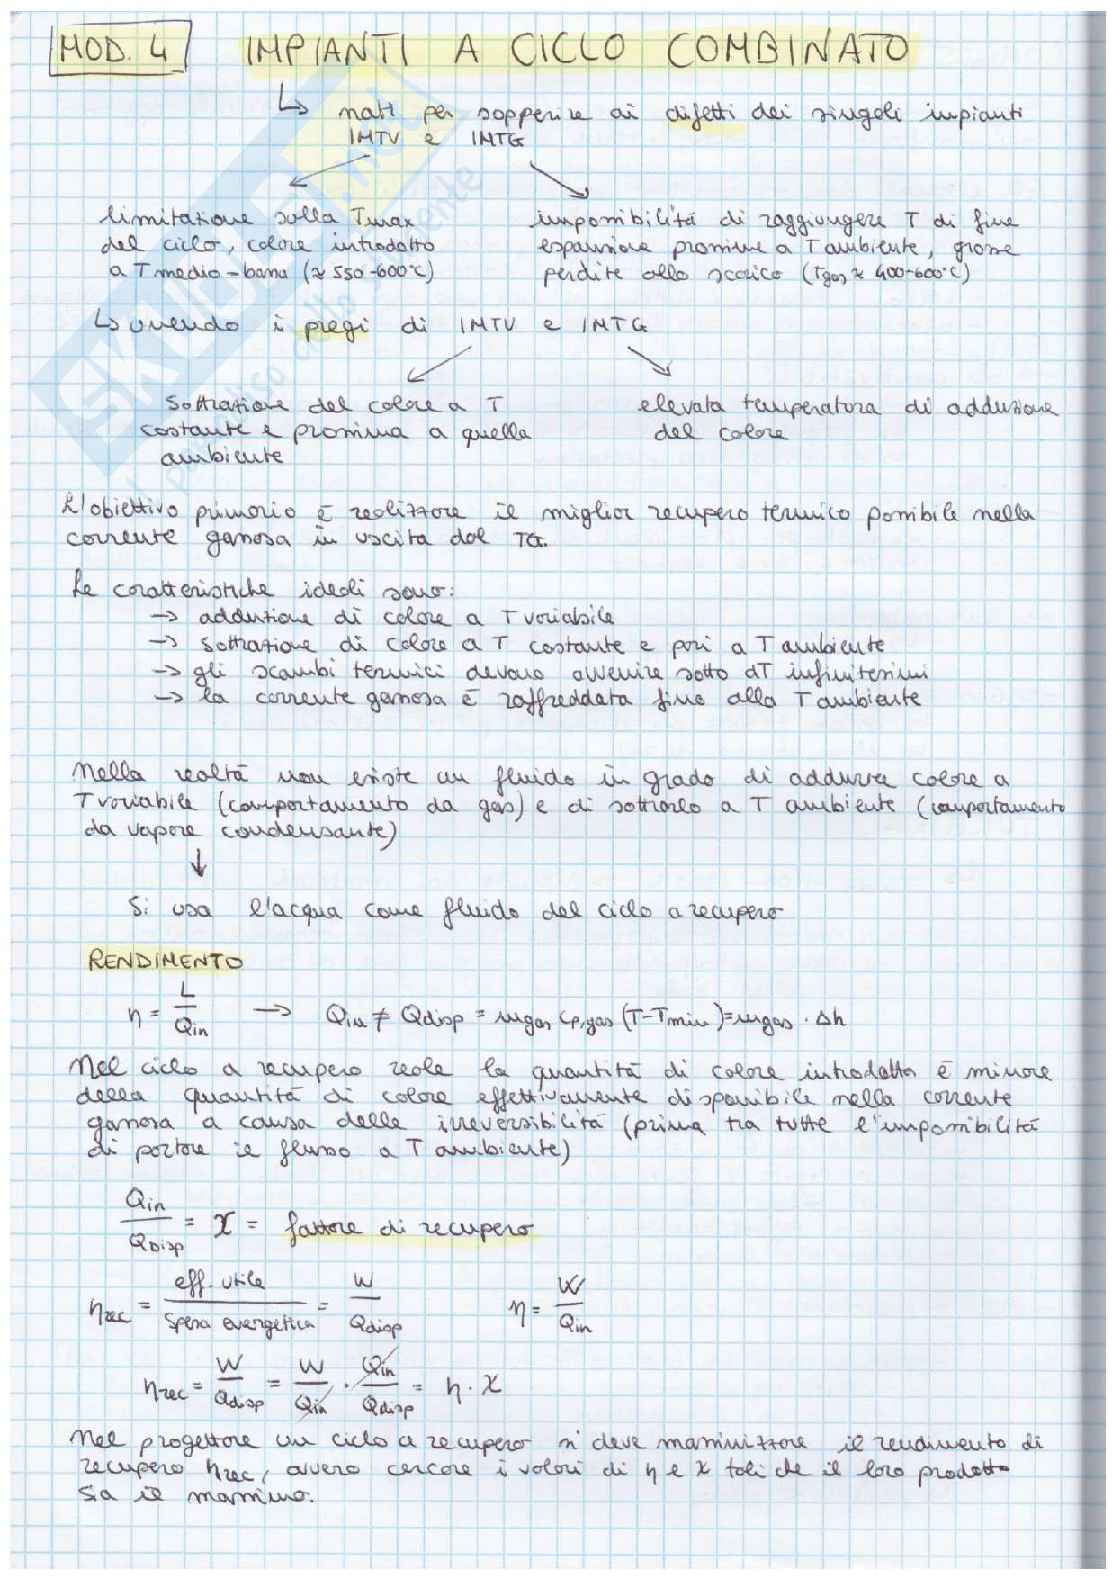 MOD. 4 IMPIANTI A CICLO COMBINATO
↳ nati per sopperire ai difetti dei singoli impianti
IMTV e IMTG
limitazione sulla Tmax
del ciclo, calore introdotto
a T medio-bassa (≈ 550-600°C)
impossibilità di raggiungere T di fine
espansione prossime a T ambiente, grosse
perdite allo scarico (Tgas ≈ 400-600°C)
↳ unendo i pregi di IMTV e IMTG
sottrazione del calore a T
costante e prossima a quella
ambiente
elevata temperatura di adduzione
del calore
L'obiettivo primario è realizzare il miglior recupero termico possibile nella
corrente gassosa in uscita dal TG.
Le caratteristiche ideali sono:
→ adduzione di calore a T variabile
→ sottrazione di calore a T costante e pari a T ambiente
→ gli scambi termici devono avvenire sotto dT infinitesimi
→ la corrente gassosa è raffreddata fino alla T ambiente
Nella realtà non esiste un fluido in grado di addurre calore a
T variabile (comportamento da gas) e di sottrarlo a T ambiente (comportamento
da vapore condensante)
↓
Si usa l'acqua come fluido del ciclo a recupero
RENDIMENTO
η = L/Qin → Qin ≠ Qdisp = ṁgas cp,gas (T-Tmin) = ṁgas · Δh
Nel ciclo a recupero reale la quantità di calore introdotta è minore
della quantità di calore effettivamente disponibile nella corrente
gassosa a causa delle irreversibilità (prima tra tutte l'impossibilità
di portare il flusso a T ambiente)
Qin/QDisp = χ = fattore di recupero
ηrec = eff. utile/spesa energetica = W/Qdisp η = W/Qin
ηrec = W/Qdisp = W/Qin · Qin/Qdisp = η · χ
Nel progettare un ciclo a recupero si deve massimizzare il rendimento di
recupero ηrec, ovvero cercare i valori di η e χ tali che il loro prodotto
sia il massimo.
SKUOLA.net